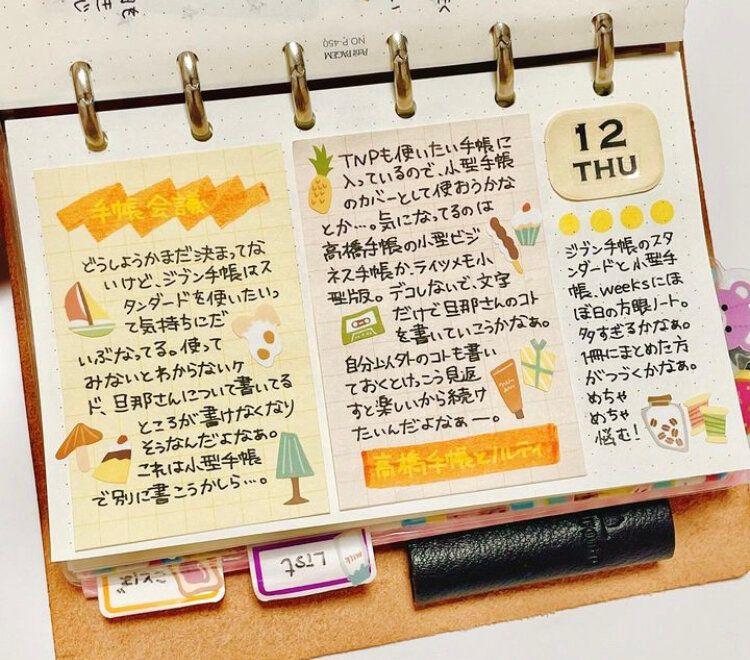 Petit PAGEM
NO.P-450
手帳会議
どうしようかまだ決まってな
いけど、ジブン手帳はス
タンダードを使いたいっ
て気持ちにだ
いぶなってる。使って
みないとわからないケ
ド、旦那さんについて書いてる
ところが書けなくなり
そうなんだよなぁ。
これは小型手帳
で別に書こうかしら…。
TNPも使いたい手帳に
入っているので、小型手帳
のカバーとして使おうかな
とか…。気になってるのは
高橋手帳の小型ビジ
ネス手帳か、ライツメモ小
型版。デコしないで、文字
だけで旦那さんのコト
を書いていこうかなぁ。
自分以外のコトも書い
ておくとけっこう見返
すと楽しいから続け
たいんだよなぁー。
高橋手帳とノルティ
12
THU
ジブン手帳のスタ
ンダードと小型手
帳、weeksにほ
ぼ日の方眼ノート。
多すぎるかなぁ。
1冊にまとめた方
がつづくかなぁ。
めちゃ
めちゃ
悩む!
LIST
milk